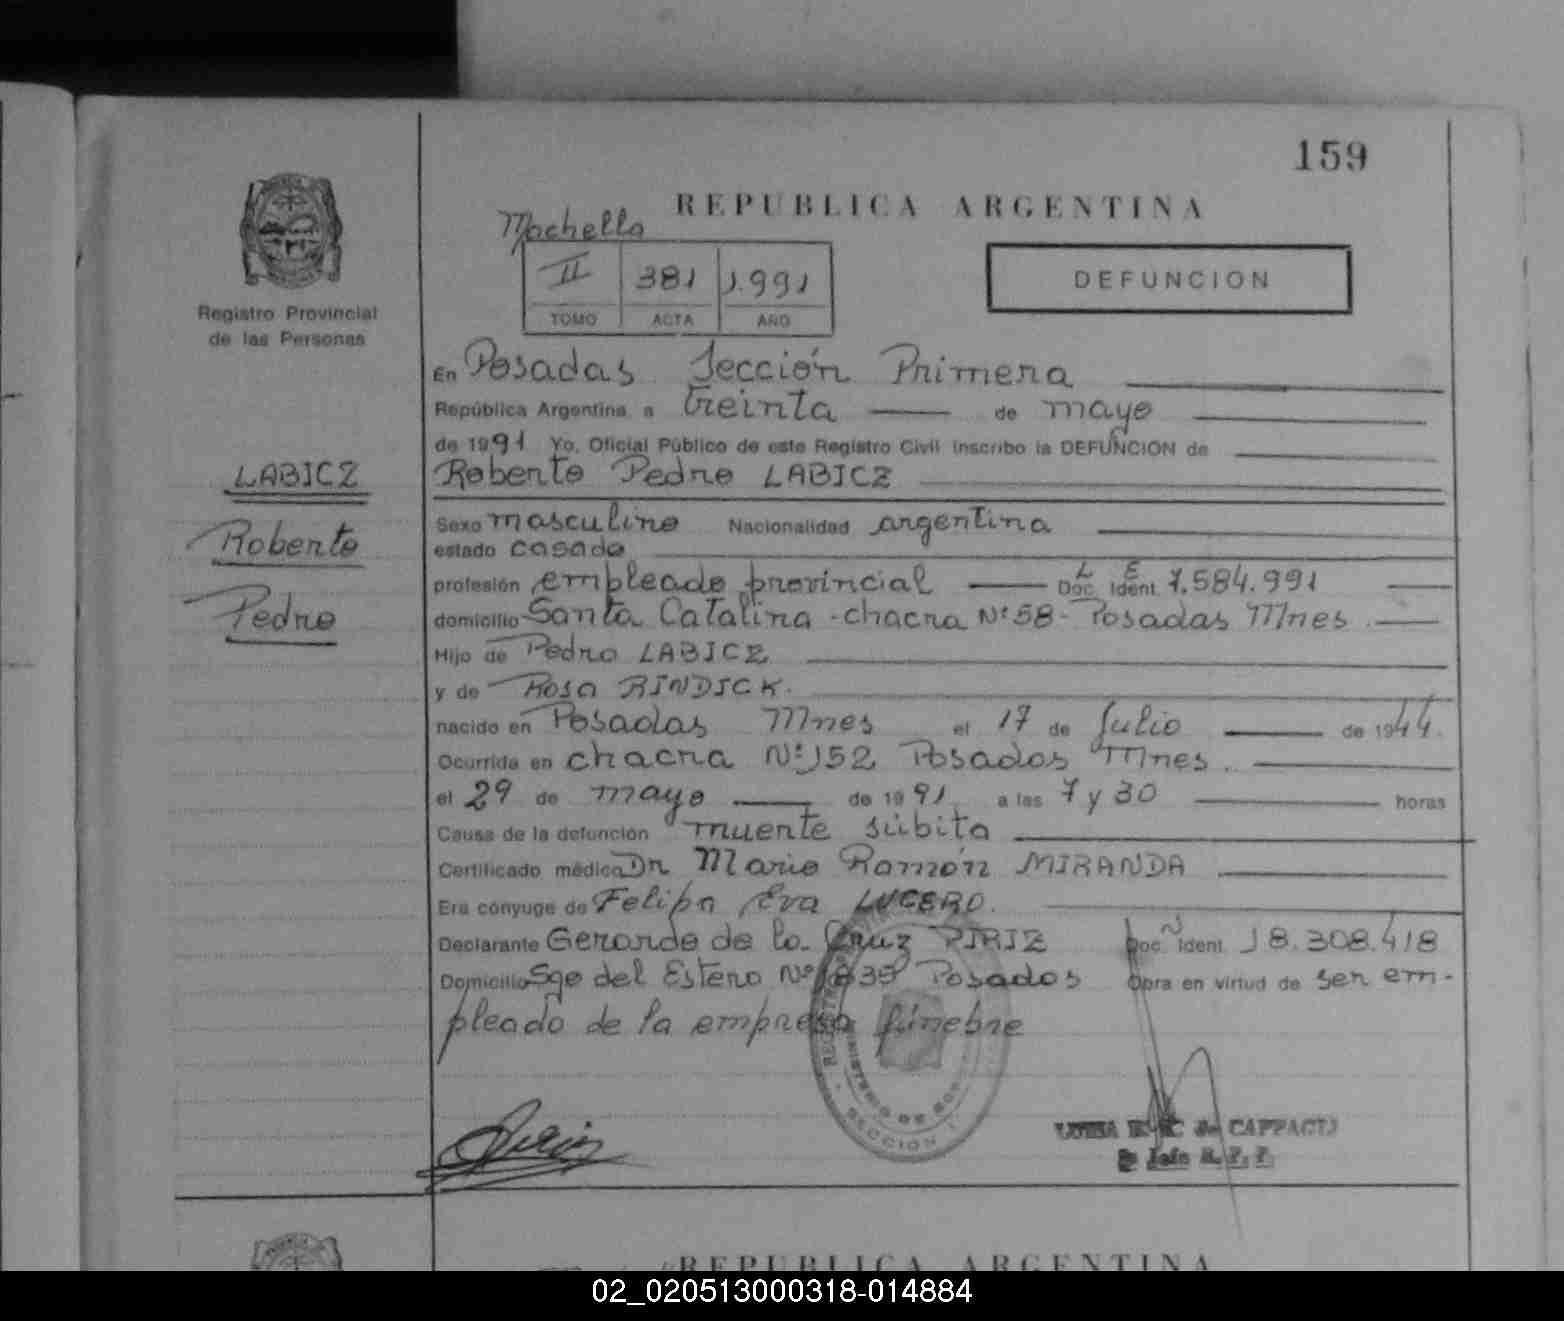 159
REPUBLICA ARGENTINA
Registro Provincial
de las Personas
LABICZ
Roberto
Pedro
Machello
II 381 1.991
TOMO ACTA AÑO
DEFUNCION
En Posadas Sección Primera
República Argentina, a treinta de mayo
de 1991 Yo, Oficial Público de este Registro Civil inscribo la DEFUNCION de
Roberto Pedro LABICZ
Sexo masculino Nacionalidad argentina
estado casado
profesión empleado provincial L E Doc. Ident. 7.584.991
domicilio Santa Catalina - chacra Nº 58 - Posadas Mnes.
Hijo de Pedro LABICZ
y de Rosa RINDICK.
nacido en Posadas Mnes el 17 de Julio de 1944.
Ocurrida en chacra Nº 152 Posadas Mnes.
el 29 de mayo de 1991 a las 7 y 30 horas
Causa de la defunción muerte súbita
Certificado médico Dr Mario Ramón MIRANDA
Era conyuge de Felipa Eva LUCERO.
Declarante Gerardo de la Cruz PIRIZ Doc. Ident. 18.308.418
Domicilio Sgo del Estero Nº 1835 Posadas Obra en virtud de ser em-
pleado de la empresa fúnebre
MINISTERIO DE
SECCION 1
de CAPPACIJ
REPUBLICA ARGENTINA
02_020513000318-014884